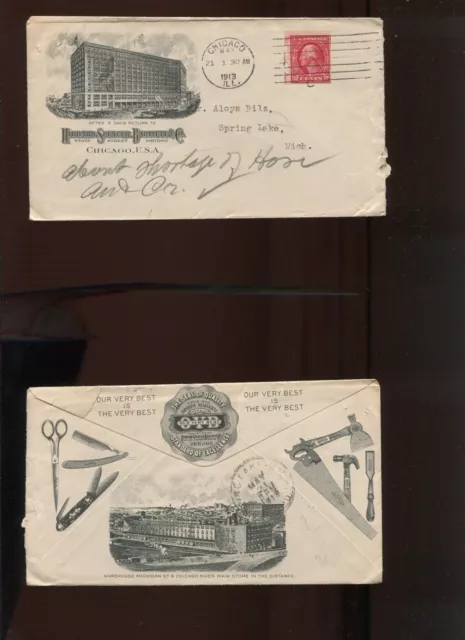 CHICAGO
MAY
23
1913
ILL.
2 CENTS 2
AFTER 5 DAYS RETURN TO
HIBBARD, SPENCER, BARTLETT & CO.
STATE STREET BRIDGE
CHICAGO, U.S.A.
Mr. Aloys Bilz,
Spring Lake,
Mich.
about Shortage of Hose
and Cor.
OUR VERY BEST
IS
THE VERY BEST
THE SEAL OF QUALITY
STANDARD OF EXCELLENCE
OUR VERY BEST
IS
THE VERY BEST
MAY
WAREHOUSE MICHIGAN ST. & CHICAGO RIVER MAIN STORE IN THE DISTANCE.